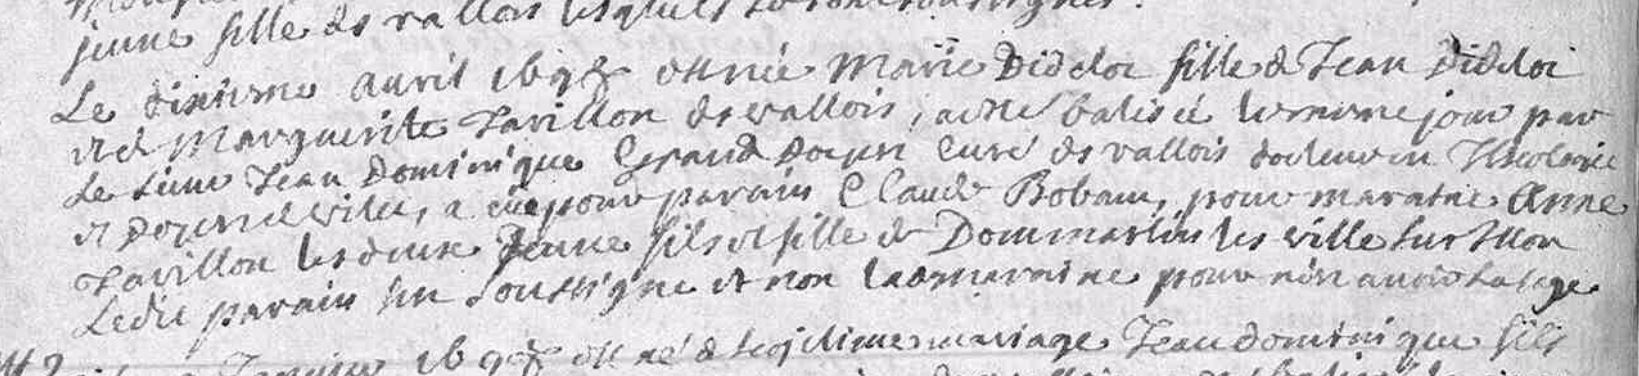 jeune fille de vallois lesquels se sont soussignés.
Le dixieme auril 1698 est née Marie Didelot fille de Jean Didelot
et de Marguerite Tavillon de vallois, a esté batisée le mesme jour par
Le sieur Jean Dominique Grand Doyen Curé de vallois docteur en Theologie
et Doyen de vitel, a eu pour parain Claude Bobam, pour maraine Anne
Tavillon les deux Jeune fils et fille de Dommartin les ville sur Illon
Ledit parain sin soussigne et non la maraine pour nen avoir lusage
Janvier 1698 est né de legitime mariage Jean dominique fils